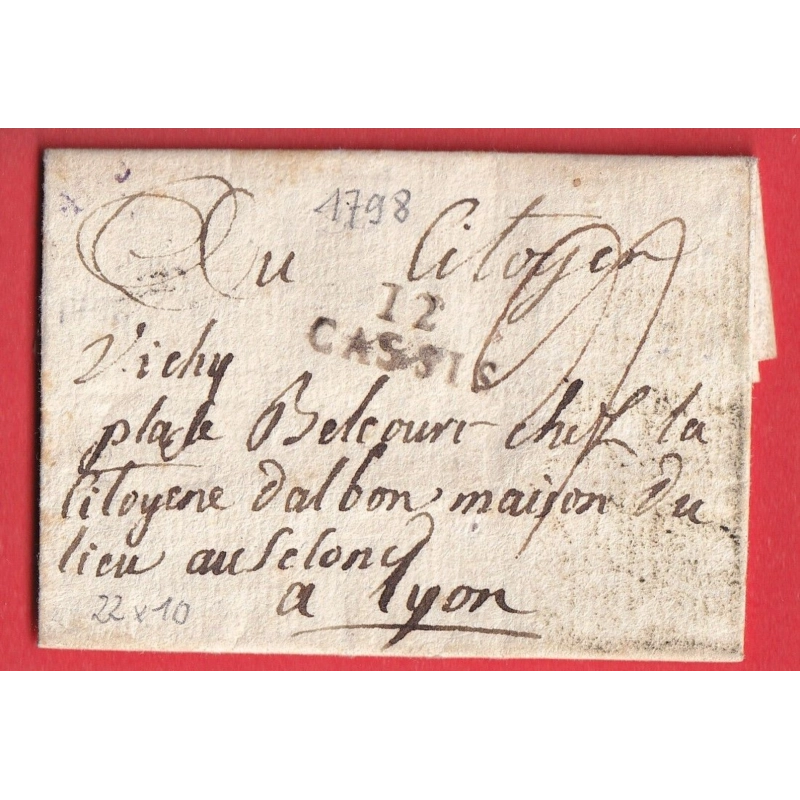 1798
Du Citoyen
12
CASSIS
Vichy
place Belcourt chez la
Citoyene dalbon maison du
lieu au Selond
a Lyon
22 x 10